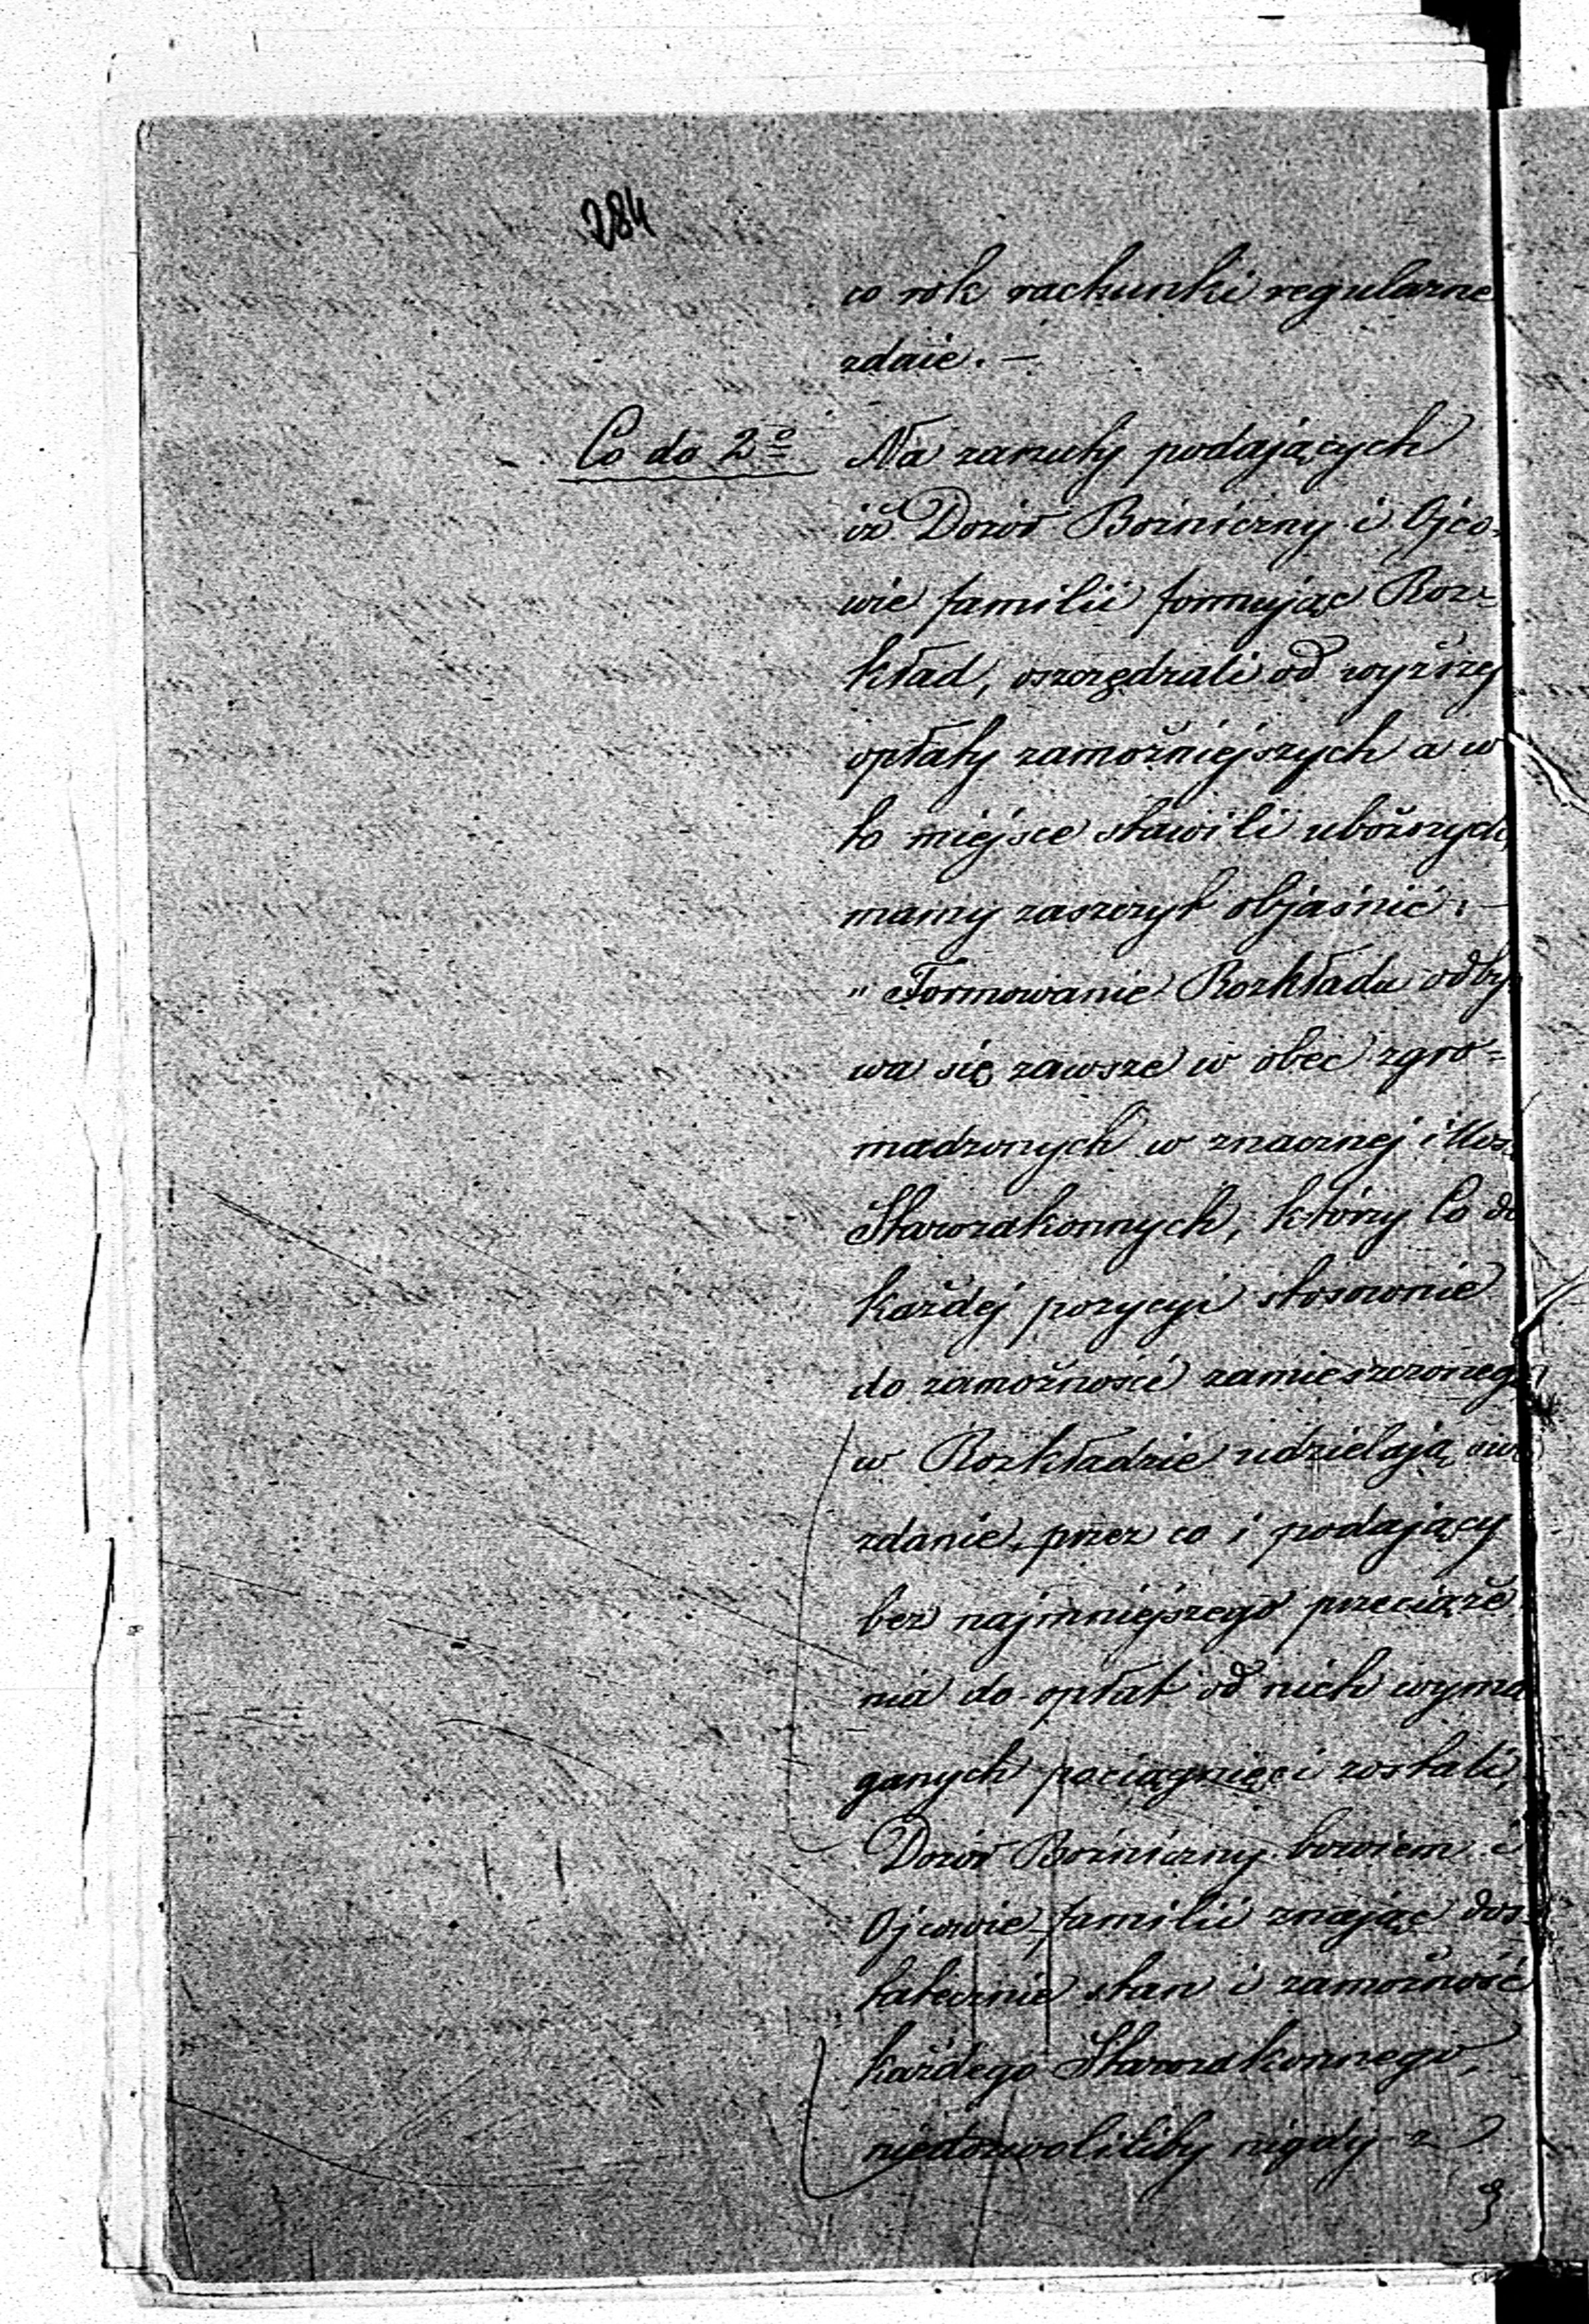 284
co rok rachunki regularne
zdaie. —
Co do 2º Na zarzuty podających
iż Dozór Bożniczny i Ojco-
wie familii formując Roz-
kład, oszczędzali od wyższej
opłaty zamożniejszych a w
to miejsce stawili uboższych,
mamy zaszczyt objaśnić: —
" Formowanie Rozkładu odby
wa się zawsze w obec zgro-
madzonych w znacznej illoś.
Starozakonnych, którzy Co do
każdej pozycyi stosownie
do zamożności zamieszczonego
w Rozkładzie udzielają swe
zdanie, przez co i podający
bez najmniejszego przeciąże
nia do opłat od nich wyma
ganych pociągnięci zostali,
Dozór Bożniczny bowiem i
Ojcowie familii znając dos-
tatecznie stan i zamożność
każdego Starozakonnego,
niedozwoliliby nigdy z